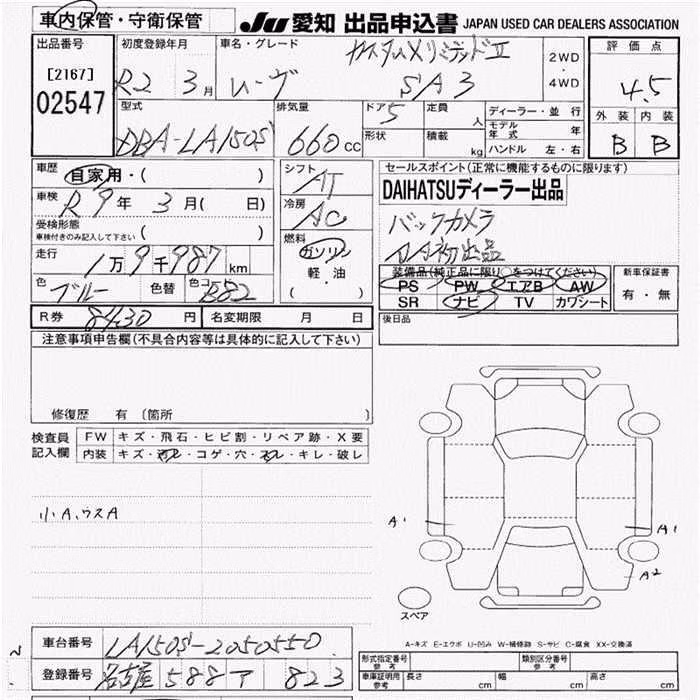 車内保管・守衛保管 JU 愛知 出品申込書 JAPAN USED CAR DEALERS ASSOCIATION
出品番号 初度登録年月 車名・グレード カスタムXリミテッドII 2WD ・ 4WD 評価点
[2167] R2 3月 ムーヴ SA3 4.5
02547 型式 排気量 ドア 5 定員 人 ディーラー・並行 外装 内装
DBA-LA150S 660cc 形状 積載 kg モデル年式 年 B B
ハンドル 左・右
車歴 自家用・( ) シフト AT セールスポイント(正常に機能するものに限ります)
車検 R9年3月( 日) 冷房 AC DAIHATSUディーラー出品
受検形態 車検付きのみ記入して下さい ( ) バックカメラ
燃料 ガソリン 軽・油 ( ) AA初出品
走行 1万9千987km 装備品(純正品に限り○をつけてください) 新車保証書
色 ブルー 色替 色コード B82 PS PW エアB AW 有・無
SR ナビ TV カワシート
R券 8430円 名変期限 月 日 後日品
注意事項申告欄(不具合内容等は具体的に記入して下さい)
修復歴 有 〔箇所 〕
検査員記入欄 FW キズ・飛石・ヒビ割・リペア跡・X要
内装 キズ・汚レ・コゲ・穴・スレ・キレ・破レ
小A、ウスA
A1 A1
A2
スペア
A-キズ E-エクボ U-凹み W-補修跡 S-サビ C-腐食 XX-交換済
車台番号 LA150S-2050550 形式指定番号 参考 類別区分番号 参考
登録番号 名古屋 588 ア 823 車庫証明用 参考 長さ cm 幅 cm 高さ cm